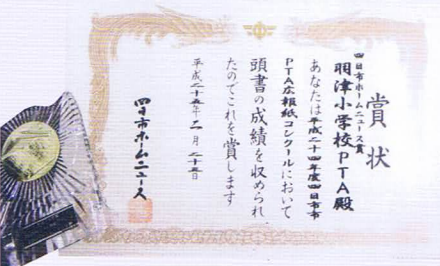 賞状
四日市ホームニュース賞
羽津小学校PTA殿
あなたは平成二十四年度四日市市
PTA広報紙コンクールにおいて
頭書の成績を収められ
たのでこれを賞します
平成二十五年二月二十五日
四日市ホームニュース